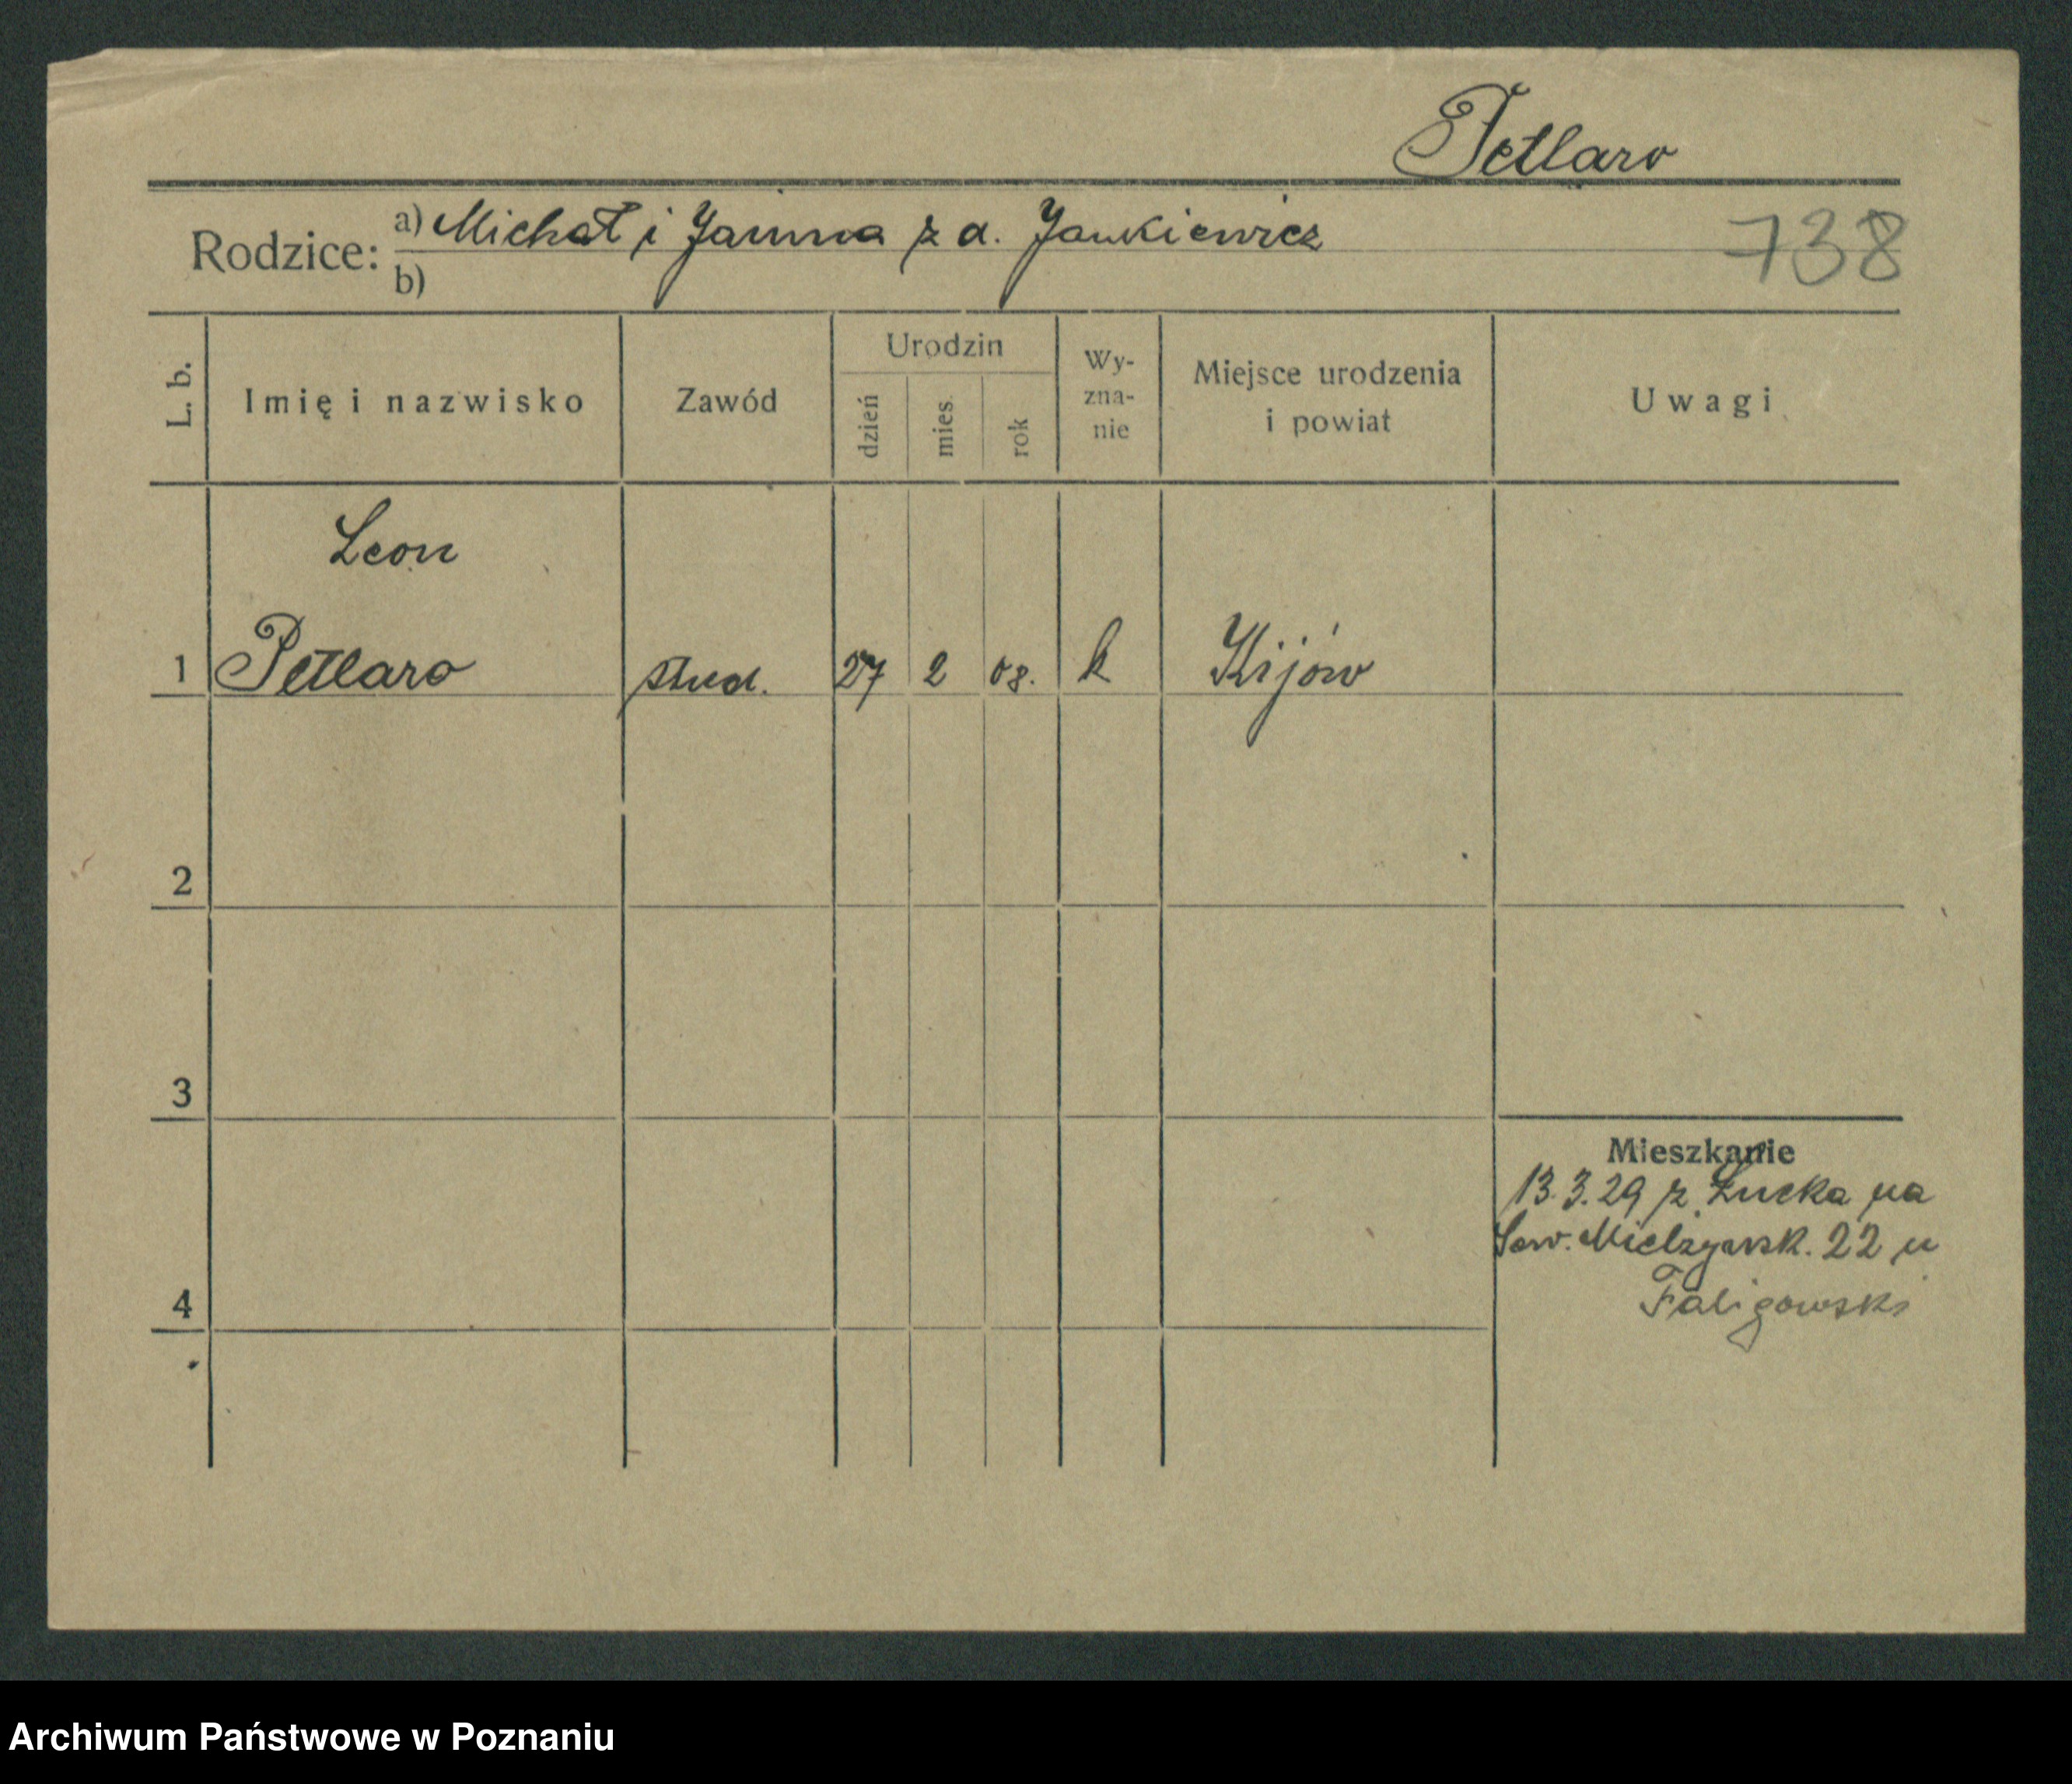 Petlaro
Rodzice: a) Michał i Janina z d. Jankiewicz
738
b)
L. b.
Imię i nazwisko
Zawód
Urodzin
dzień
mies.
rok
Wy-
zna-
nie
Miejsce urodzenia
i powiat
Uwagi
Leon
1 Petlaro stud. 27 2 08. k Kijów
2
3
Mieszkanie
13.3.29 z Łucka na
Sew. Mielżyńsk. 22 u
4
Faligowski
Archiwum Państwowe w Poznaniu